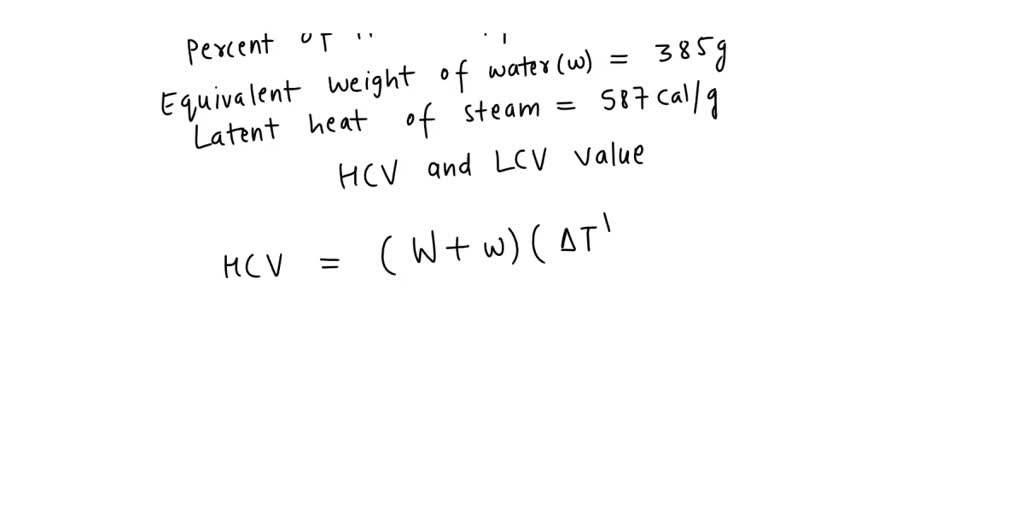 Percent of
Equivalent weight of water(w) = 385g
Latent heat of steam = 587 cal/g
HCV and LCV value
HCV = (W+w)(ΔT'